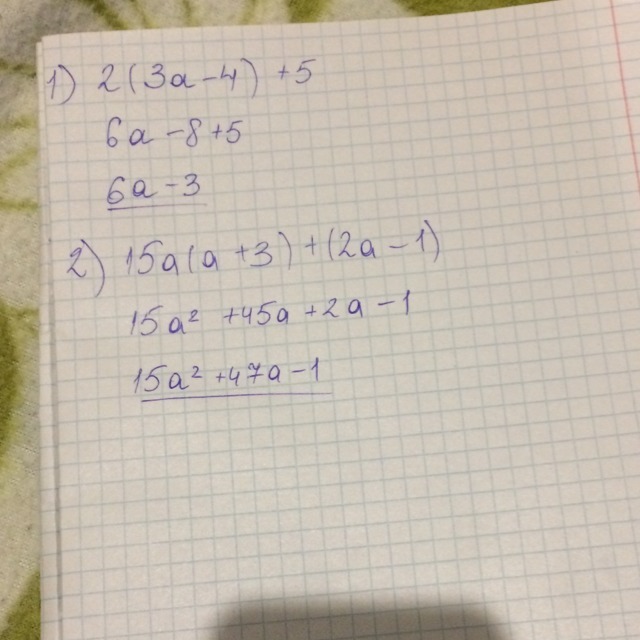 1) 2(3a-4) +5
6a-8+5
6a-3
2) 15a(a+3)+(2a-1)
15a² +45a+2a-1
15a²+47a-1